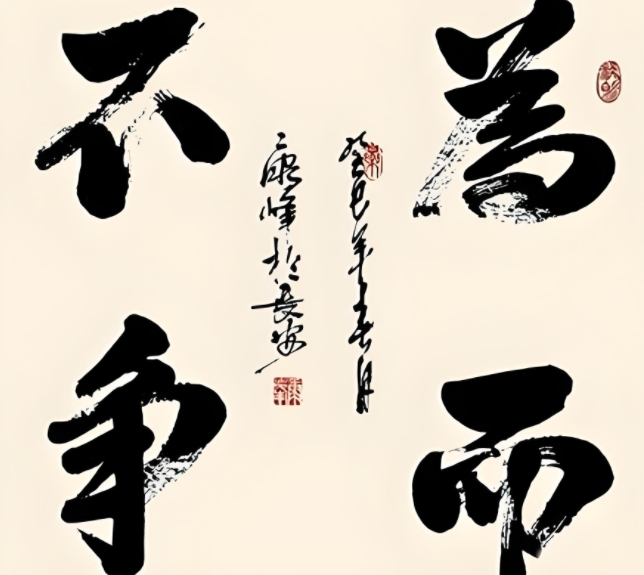 為而
不争
癸巳年春月
康峰於長安